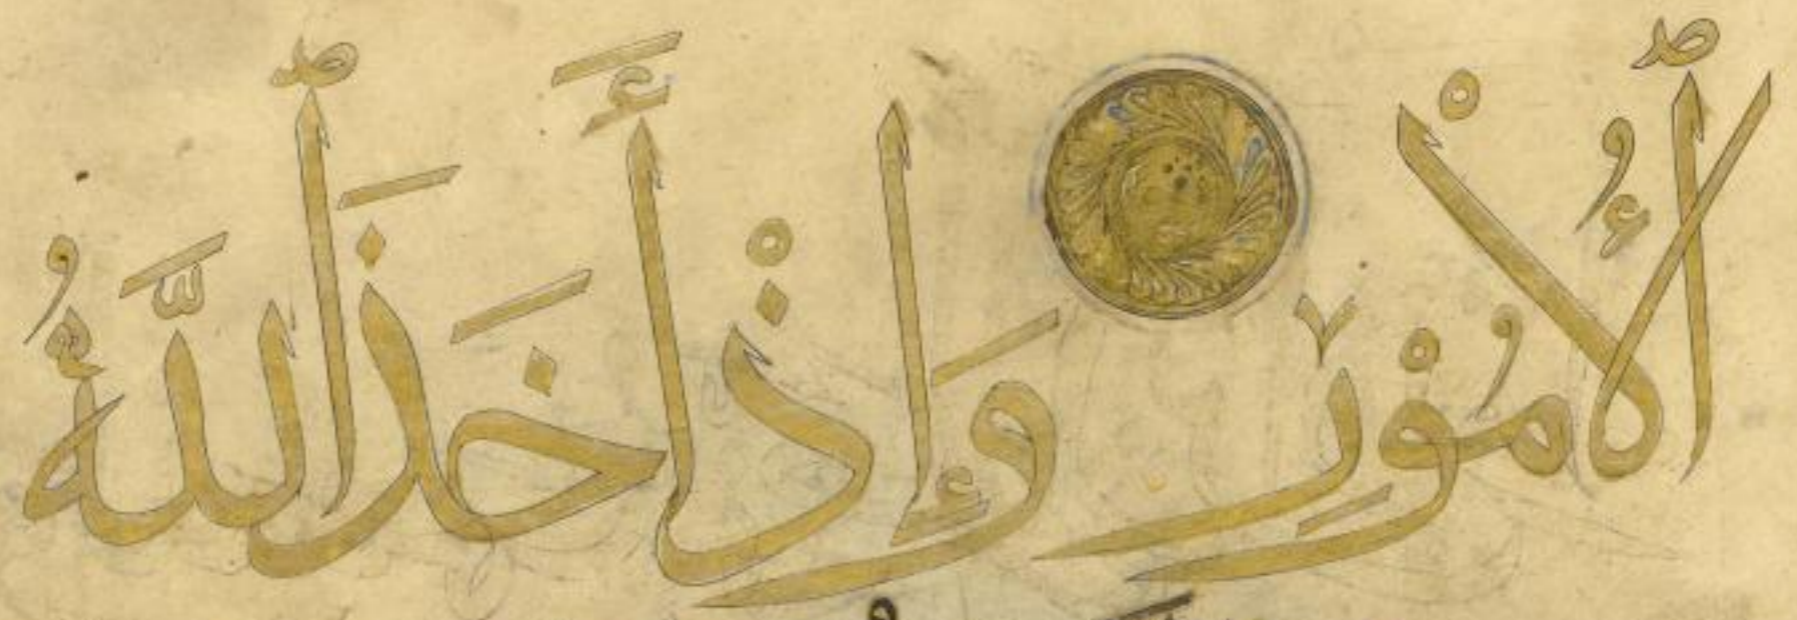 ٱلْأُمُوْرِ وَإِذْ أَخَذَ ٱللَّهُ